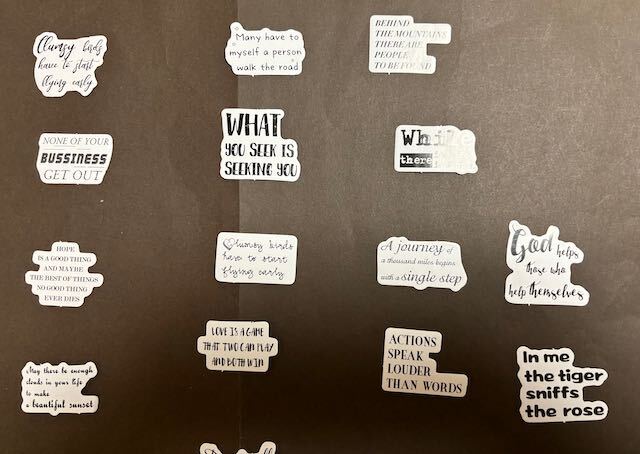 Clumsy birds
have to start
flying early
Many have to
myself a person
walk the road
BEHIND
THE MOUNTAINS
THERE ARE
PEOPLE
TO BE FOUND
NONE OF YOUR
BUSSINESS
GET OUT
WHAT
YOU SEEK IS
SEEKING YOU
While
there
HOPE
IS A GOOD THING
AND MAYBE
THE BEST OF THINGS
NO GOOD THING
EVER DIES
Clumsy birds
have to start
flying early
A journey of
a thousand miles begins
with a single step
God helps
those who
help themselves
LOVE IS A GAME
THAT TWO CAN PLAY
AND BOTH WIN
ACTIONS
SPEAK
LOUDER
THAN WORDS
May there be enough
clouds in your life
to make
a beautiful sunset
In me
the tiger
sniffs
the rose